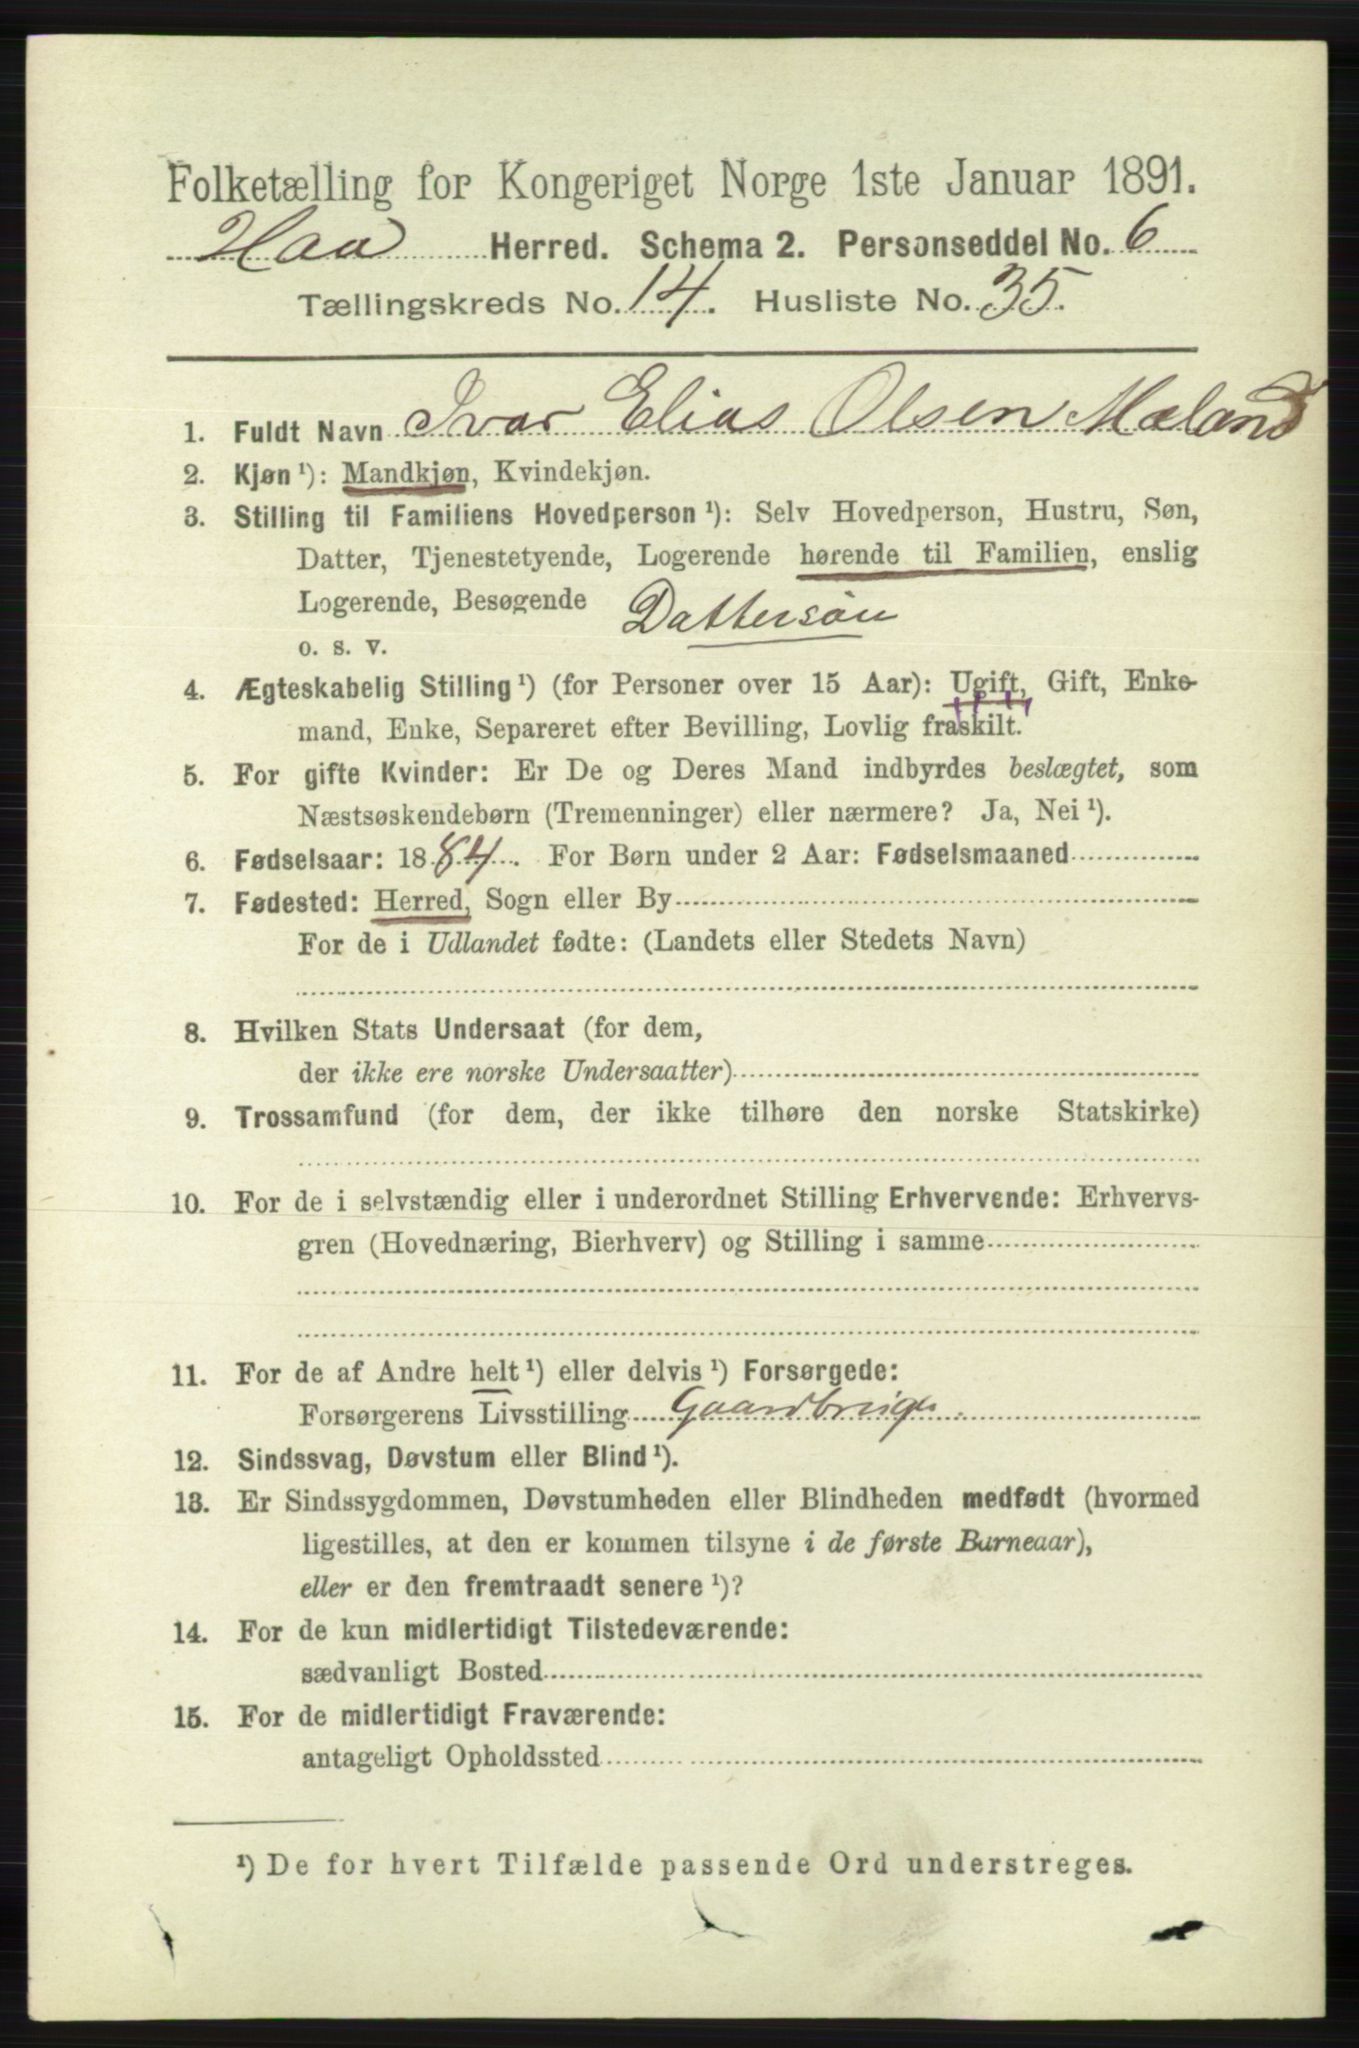 Folketælling for Kongeriget Norge 1ste Januar 1891.
Haa Herred. Schema 2. Personseddel No. 6
Tællingskreds No. 14. Husliste No. 35.
1. Fuldt Navn Ivar Elias Olsen Mæland
2. Kjøn ¹): Mandkjøn, Kvindekjøn.
3. Stilling til Familiens Hovedperson ¹): Selv Hovedperson, Hustru, Søn,
Datter, Tjenestetyende, Logerende hørende til Familien, enslig
Logerende, Besøgende Dattersøn
o. s. v.
4. Ægteskabelig Stilling ¹) (for Personer over 15 Aar): Ugift, Gift, Enke-
mand, Enke, Separeret efter Bevilling, Lovlig fraskilt.
5. For gifte Kvinder: Er De og Deres Mand indbyrdes beslægtet, som
Næstsøskendebørn (Tremenninger) eller nærmere? Ja, Nei ¹).
6. Fødselsaar: 1884. For Børn under 2 Aar: Fødselsmaaned
7. Fødested: Herred, Sogn eller By
For de i Udlandet fødte: (Landets eller Stedets Navn)
8. Hvilken Stats Undersaat (for dem,
der ikke ere norske Undersaatter)
9. Trossamfund (for dem, der ikke tilhøre den norske Statskirke)
10. For de i selvstændig eller i underordnet Stilling Erhvervende: Erhvervs-
gren (Hovednæring, Bierhverv) og Stilling i samme
11. For de af Andre helt ¹) eller delvis ¹) Forsørgede:
Forsørgerens Livsstilling Gaardbruger
12. Sindssvag, Døvstum eller Blind ¹).
13. Er Sindssygdommen, Døvstumheden eller Blindheden medfødt (hvormed
ligestilles, at den er kommen tilsyne i de første Barneaar),
eller er den fremtraadt senere ¹)?
14. For de kun midlertidigt Tilstedeværende:
sædvanligt Bosted
15. For de midlertidigt Fraværende:
antageligt Opholdssted
¹) De for hvert Tilfælde passende Ord understreges.